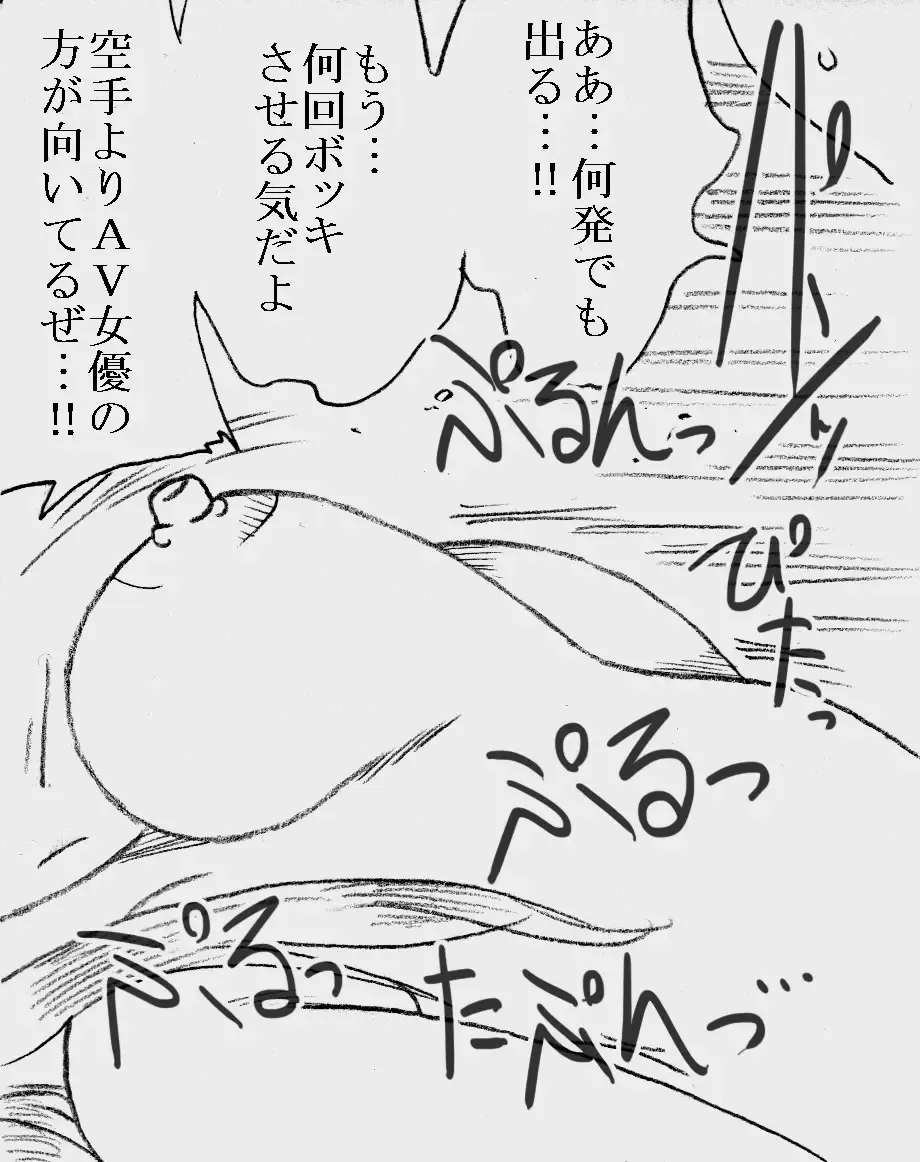 ああ…何発でも
出る…!!
もう…
何回ボッキ
させる気だよ
空手よりＡＶ女優の
方が向いてるぜ…!!
ぷるんっ
ぴたっ
ぷるっ
ぷるっ
たぷんっ…